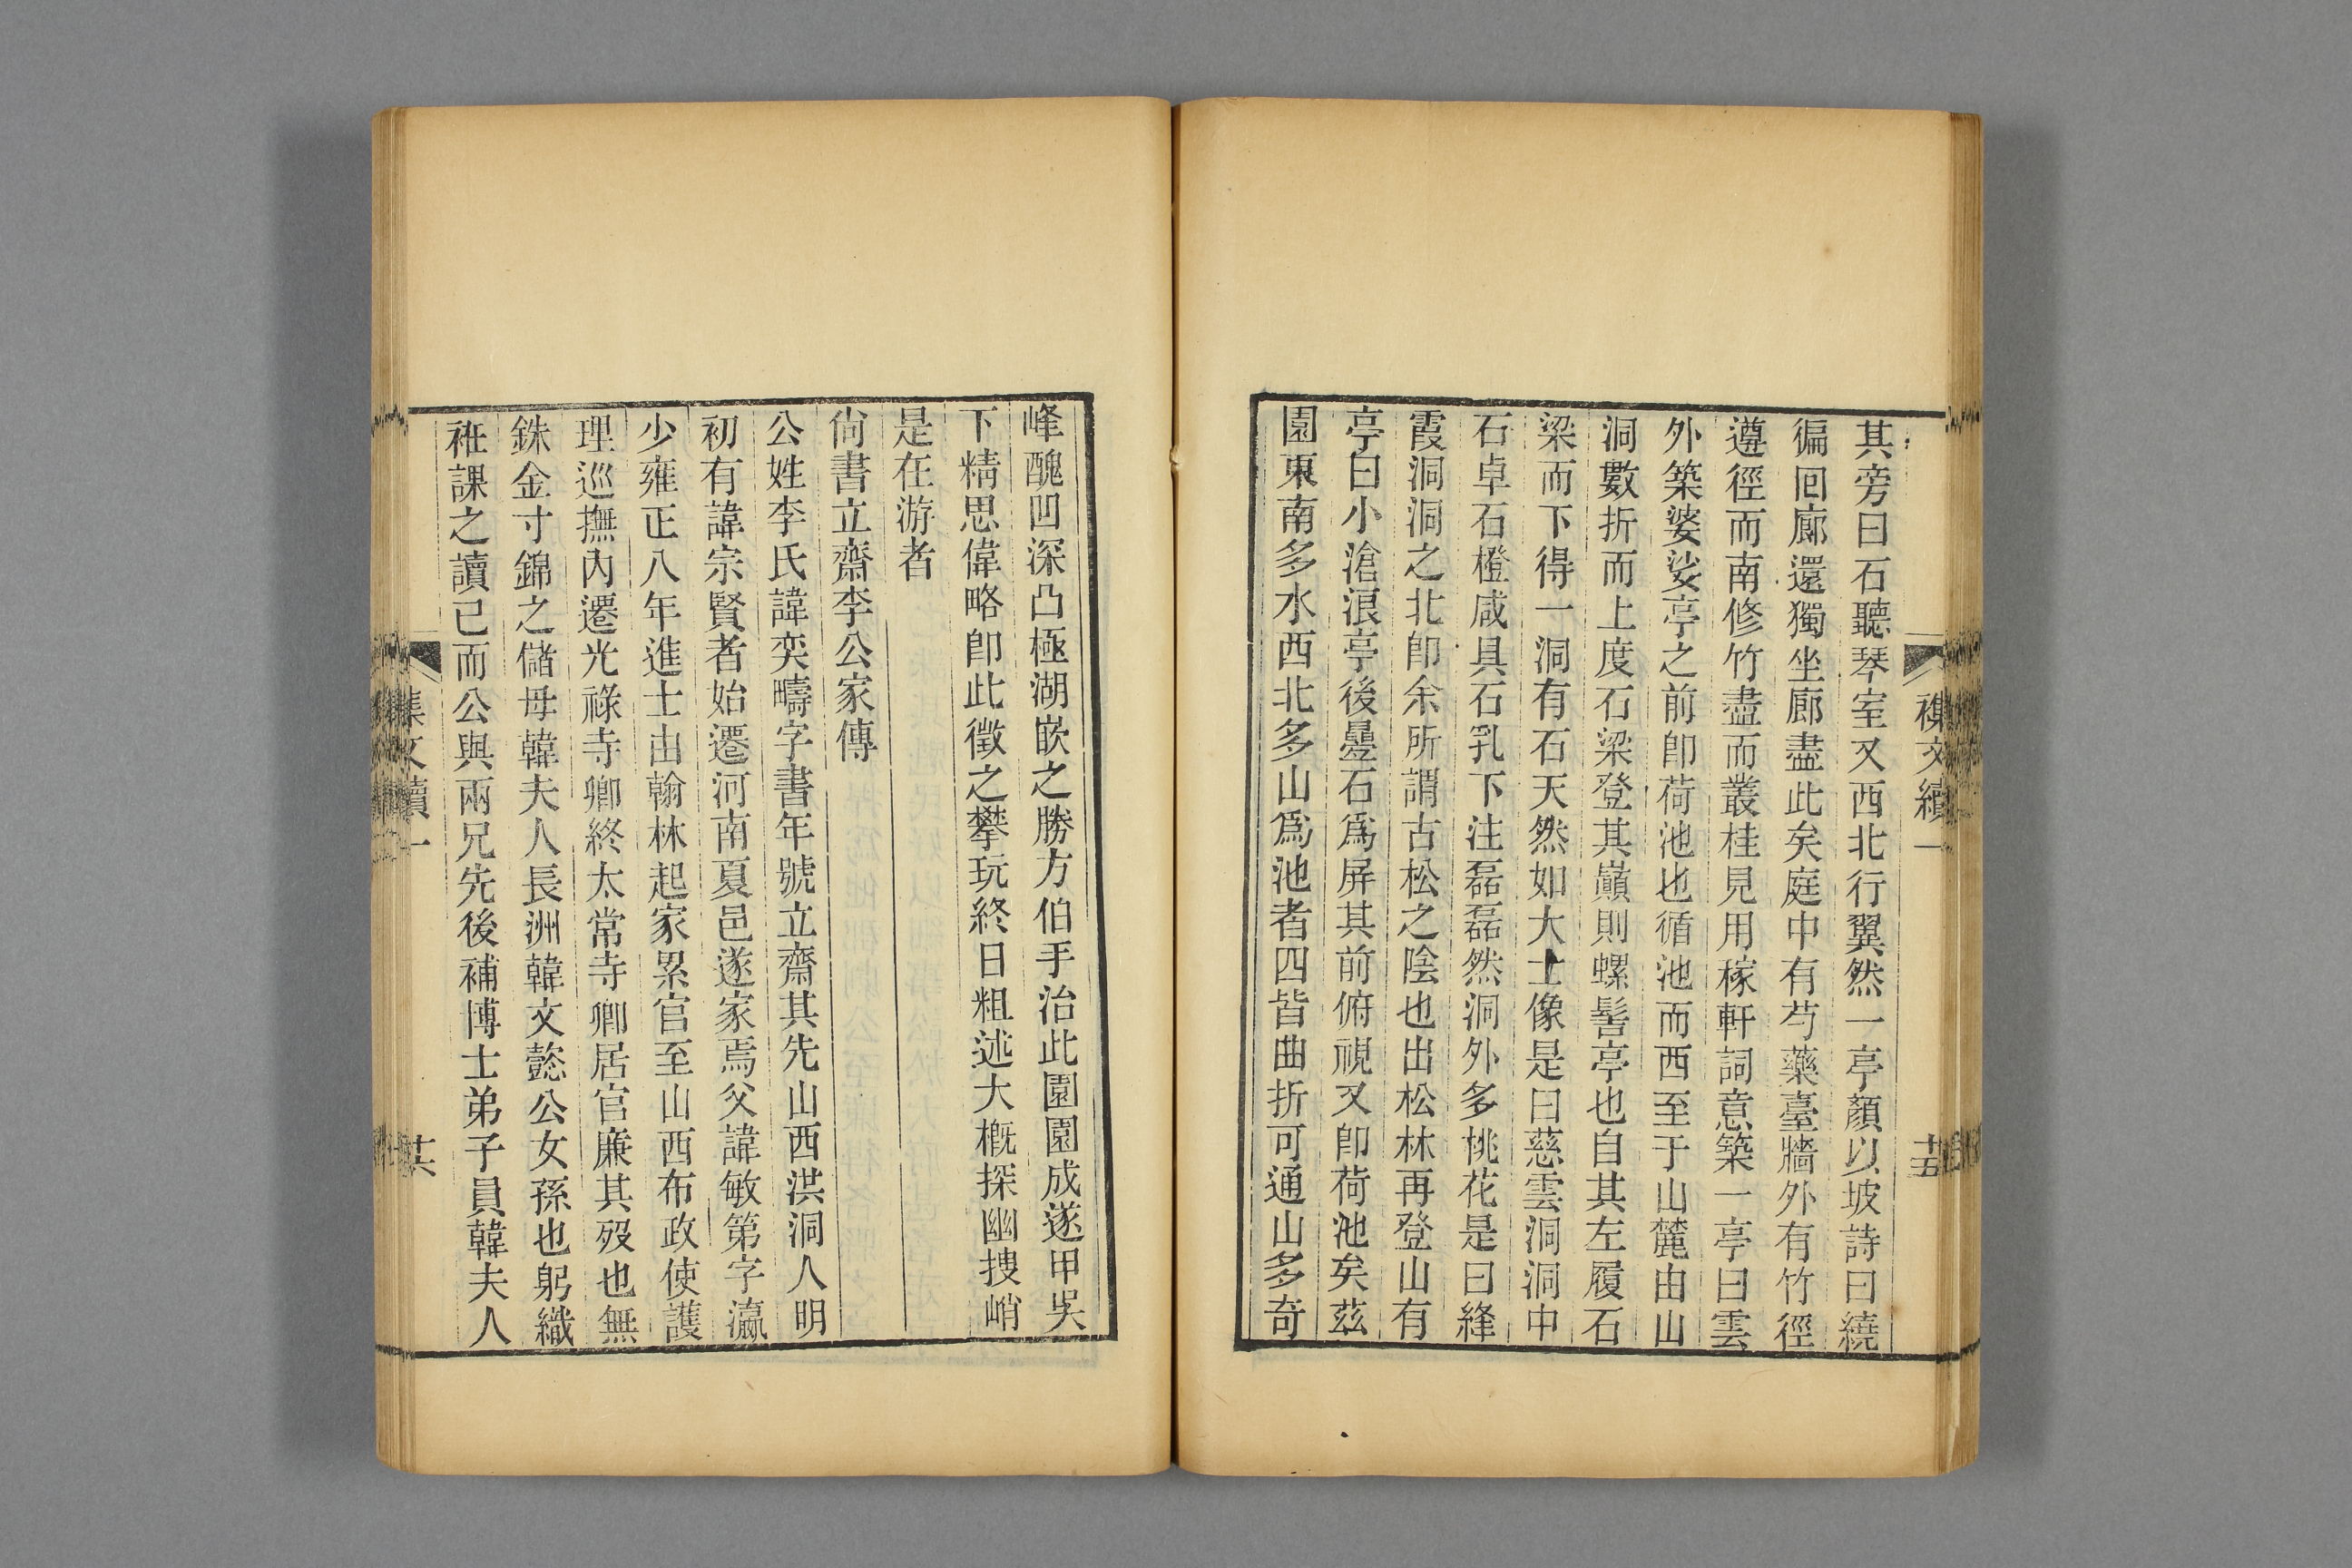 其旁曰石聽琴室又西北行翼然一亭顏以坡詩曰繞
徧回廊還獨坐廊盡此矣庭中有芍藥臺牆外有竹徑
遵徑而南修竹盡而叢桂見用稼軒詞意築一亭曰雲
外築婆娑亭之前卽荷池也循池而西至于山麓由山
洞數折而上度石梁登其巔則螺髻亭也自其左履石
梁而下得一洞有石天然如大士像是曰慈雲洞洞中
石卓石橙咸具石乳下注磊磊然洞外多桃花是曰絳
霞洞洞之北卽余所謂古松之陰也出松林再登山有
亭曰小滄浪亭後壘石爲屏其前俯視又卽荷池矣茲
園東南多水西北多山爲池者四皆曲折可通山多奇
峰醜凹深凸極湖嵌之勝方伯手治此園園成遂甲吳
下精思偉略卽此徵之攀玩終日粗述大槪探幽捜峭
是在游者
尙書立齋李公家傳
公姓李氏諱奕疇字書年號立齋其先山西洪洞人明
初有諱宗賢者始遷河南夏邑遂家焉父諱敏第字瀛
少雍正八年進士由翰林起家累官至山西布政使護
理巡撫內遷光祿寺卿終太常寺卿居官廉其歿也無
銖金寸錦之儲母韓夫人長洲韓文懿公女孫也躬織
絍課之讀已而公與兩兄先後補博士弟子員韓夫人
襍文續一
十五
襍文續一
十六